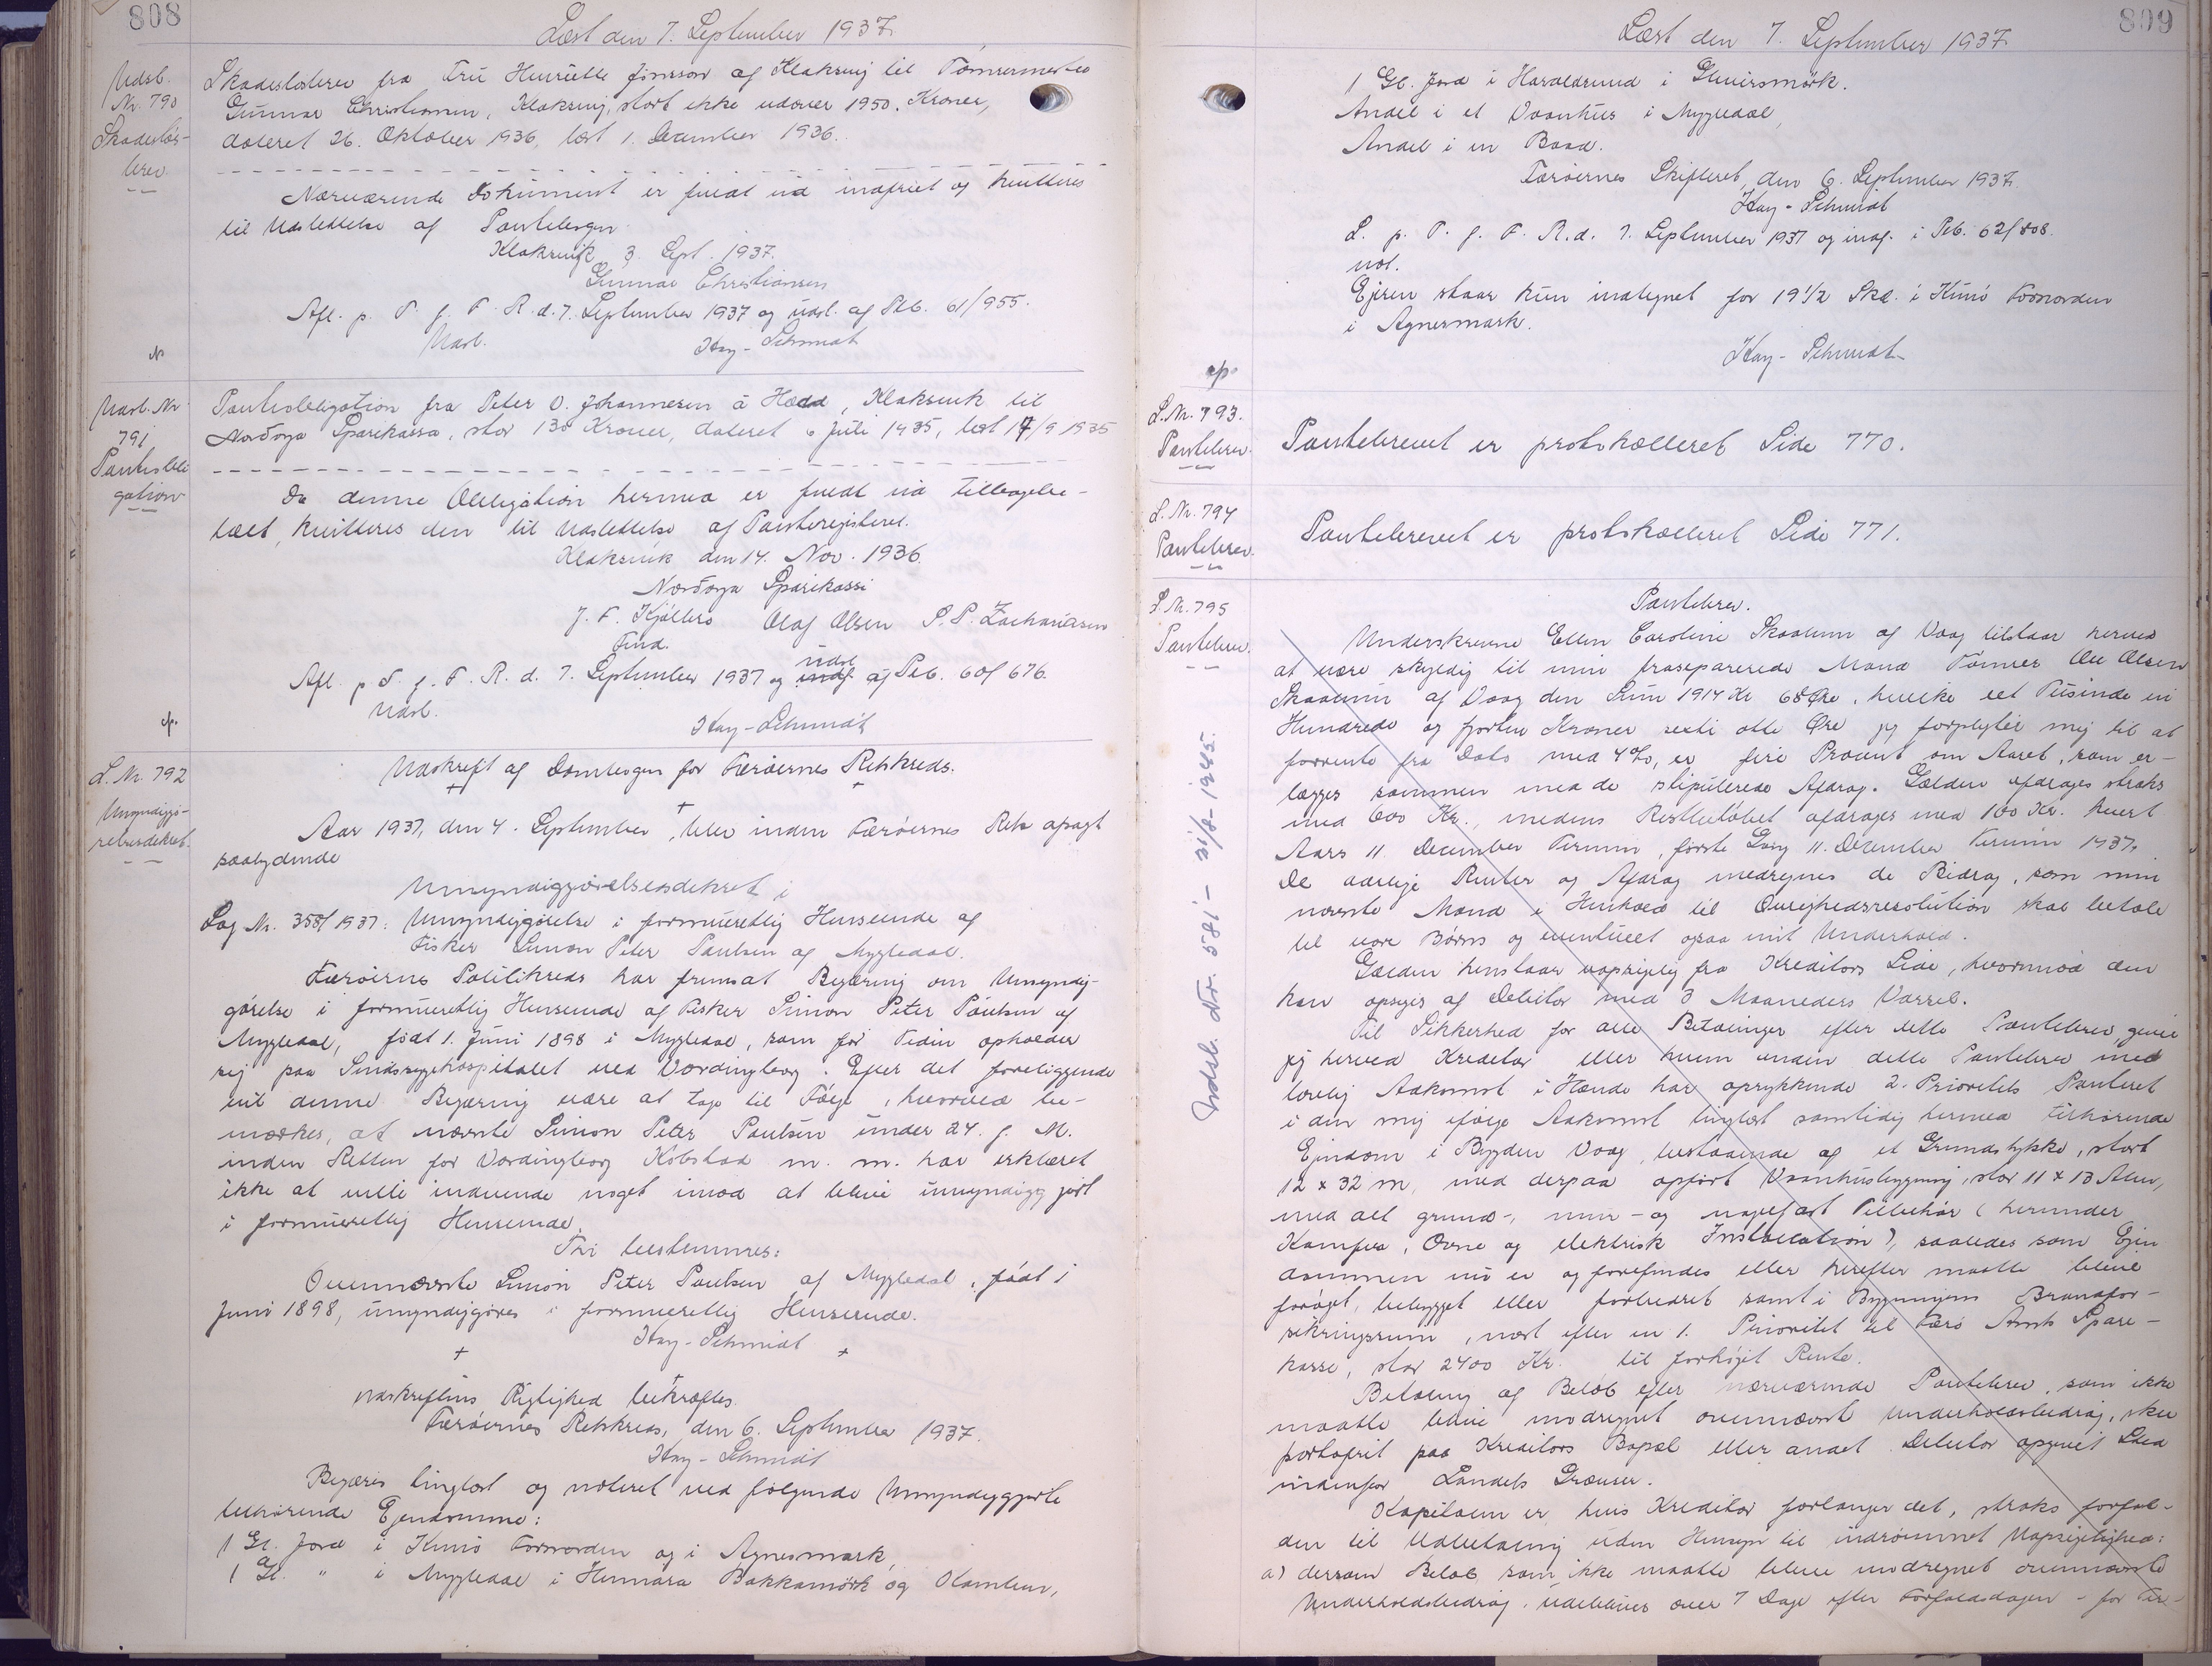 808
Læst den 7. September 1937.
Udsl.
Nr. 790
Skadesløs-
brev
Skadesløsbrev fra Fru Henriette Joensson af Klaksvig til Tømrermester
Gunnar Christiansen, Klaksvig, stort ikke udover 1950. Kroner,
dateret 26. Oktober 1936, læst 1. December 1936.
Nærværende Dokument er fuldt ud indfriet og kvitteres
til Udslettelse af Pantebogen
Klaksvik 3. Sept. 1937.
Gunnar Christiansen
Afl. p. T. f. F. R. d. 7. September 1937 og udsl. af Ptb. 61/955.
Udsl.
Hay-Schmidt
Udsl. Nr
791
Pantobli
gation
Pantobligation fra Peter O. Johannesen á Hædd, Klaksvik til
Norðoya Sparikassa, stor 130 Kroner, dateret 6 Juli 1935, læst 17/9 1935
Da denne Obligation hermed er fuldt ud tilbagebe-
talt, kvitteres den til Udslettelse af Panteregisteret.
Klaksvik den 14. Nov. 1936.
Norðoya Sparikassi
J. F. Kjølbro Olaf Olsen S. P. Zachariasen
Fmd.
Afl. p T. f. F. R. d. 7. September 1937 og indf. udsl af Ptb. 60/676.
Udsl.
Hay-Schmidt
L. Nr. 792
Umyndiggjø-
relsesdekret.
Udskrift af Dombogen for Færøernes Retskreds.
Aar 1937, den 4. September, blev inden Færøernes Ret afsagt
saalydende
Umyndiggjørelsesdekret i
Sag Nr. 358/1937: Umyndiggørelse i formueretlig Henseende af
Fisker Simon Peter Poulsen af Mygledal.
Færøernes Politikreds har fremsat Begæring om Umyndig-
gørelse i formueretlig Henseende af Fisker Simon Peter Poulsen af
Mygledal, født 1. Juni 1898 i Mygledal, som for Tiden opholder
sig paa Sindssygehospitalet ved Vordingborg. Efter det foreliggende
vil denne Begæring være at tage til Følge, hvorved be-
mærkes, at nævnte Simon Peter Poulsen under 24. f. M.
inden Retten for Vordingborg Købstad m. m. har erklæret
ikke at ville indvende noget imod at blive umyndiggjort
i formueretlig Henseende.
Thi bestemmes:
Ovennævnte Simon Peter Poulsen af Mygledal, født 1
Juni 1898, umyndiggøres i formueretlig Henseende.
Hay-Schmidt
Udskriftens Rigtighed bekræftes.
Færøernes Retskreds, den 6. September 1937.
Hay-Schmidt
Begæres tinglæst og noteret ved følgende Umyndiggjorte
tilhørende Ejendomme:
1 Gl. Jord i Kunø Fornorden og i Agnesmark,
1 Gl. " i Mygledal i Hennara Bakkamørk og
809
Læst den 7. September 1937.
1 Gl. Jord i Haraldssund i
Andel i et Vaanhus i Mygledal,
Andel i en Baad.
Færøernes Skifteret, den 6. September 1937.
Hay-Schmidt
L. p. T. f. F. R. d. 7. September 1937 og indf. i Ptb. 62/808.
Ejeren staar kun indtegnet for 19 1/2 Skd. i Kunø Fornorden
i Agnesmark.
Hay-Schmidt
L. Nr. 793.
Pantebrev.
Pantebrevet er protokolleret Side 770.
L. Nr. 794
Pantebrev.
Pantebrevet er protokolleret Side 771.
L. Nr. 795
Pantebrev.
Pantebrev.
Underskrevne Ellen Caroline Skaalum af Vaag tilstaar herved
at være skyldig til min fraseparerede Mand Tømrer Ole Olsen
Skaalum af Vaag den Sum 1914 Kr 68 Øre, hvilke eet Tusinde ni
Hundrede og fjorten Kroner seksti otte Øre jeg forpligter mig til at
forrente fra Dato med 4 %, er fire Procent om Aaret, som er-
lægges sammen med de stipulerede Afdrag. Gælden afdrages straks
med 600 Kr., medens Restbeløbet afdrages med 100 Kr. hvert
Aars 11. December Termin, første Gang 11. December Termin 1937.
De aarlige Renter og Afdrag medregnes de Bidrag, som min
nævnte Mand i Henhold til Øvrighedsresolution skal betale
til vore Børns og eventuelt ogsaa mit Underhold.
Gælden henstaar uopsigelig fra Kreditors Side, hvorimod den
kan opsiges af Debitor med 3 Maaneders Varsel.
Til Sikkerhed for alle Betalinger efter dette Pantebrev, giver
jeg herved Kreditor eller hvem anden dette Pantebrev med
lovlig Adkomst i Hænde har oprykkende 2. Prioritets Panteret
i den mig ifølge Adkomst tinglæst samtidig hermed tilhørende
Ejendom i Bygden Vaag, bestaaende af et Grundstykke, stort
12 x 32 m, med derpaa opført Vaanhusbygning, stor 11 x 13 Alen,
med alt grund-, mur- og nagelfast Tilbehør (herunder
Komfur, Ovne og elektrisk Installation), saaledes som Ejen
dommen nu er og forefindes eller herefter maatte blive
forøget, bebygget eller forbedret samt i Bygningens Brandfor-
sikringssum, næst efter en 1. Prioritet til Færø Amts Spare-
kasse, stor 2400 Kr. til forhøjet Rente.
Betaling af Beløb efter nærværende Pantebrev, som ikke
maatte blive modregnet ovennævnt Underholdsbidrag, sker
portofrit paa Kreditors Bopæl eller andet Debitor opgivet Sted
indenfor Landets Grænser.
Kapitalen er, hvis Kreditor forlanger det, straks forfal-
den til Udbetaling uden Hensyn til indrømmet Uopsigelighed:
a) dersom Beløb som ikke maatte blive modregnet ovennævnte
Underholdsbidrag, udebliver over 7 Dage efter Forfaldsdagen - for Ter-
Indsl. Nr. 581 - 31/8-1945.